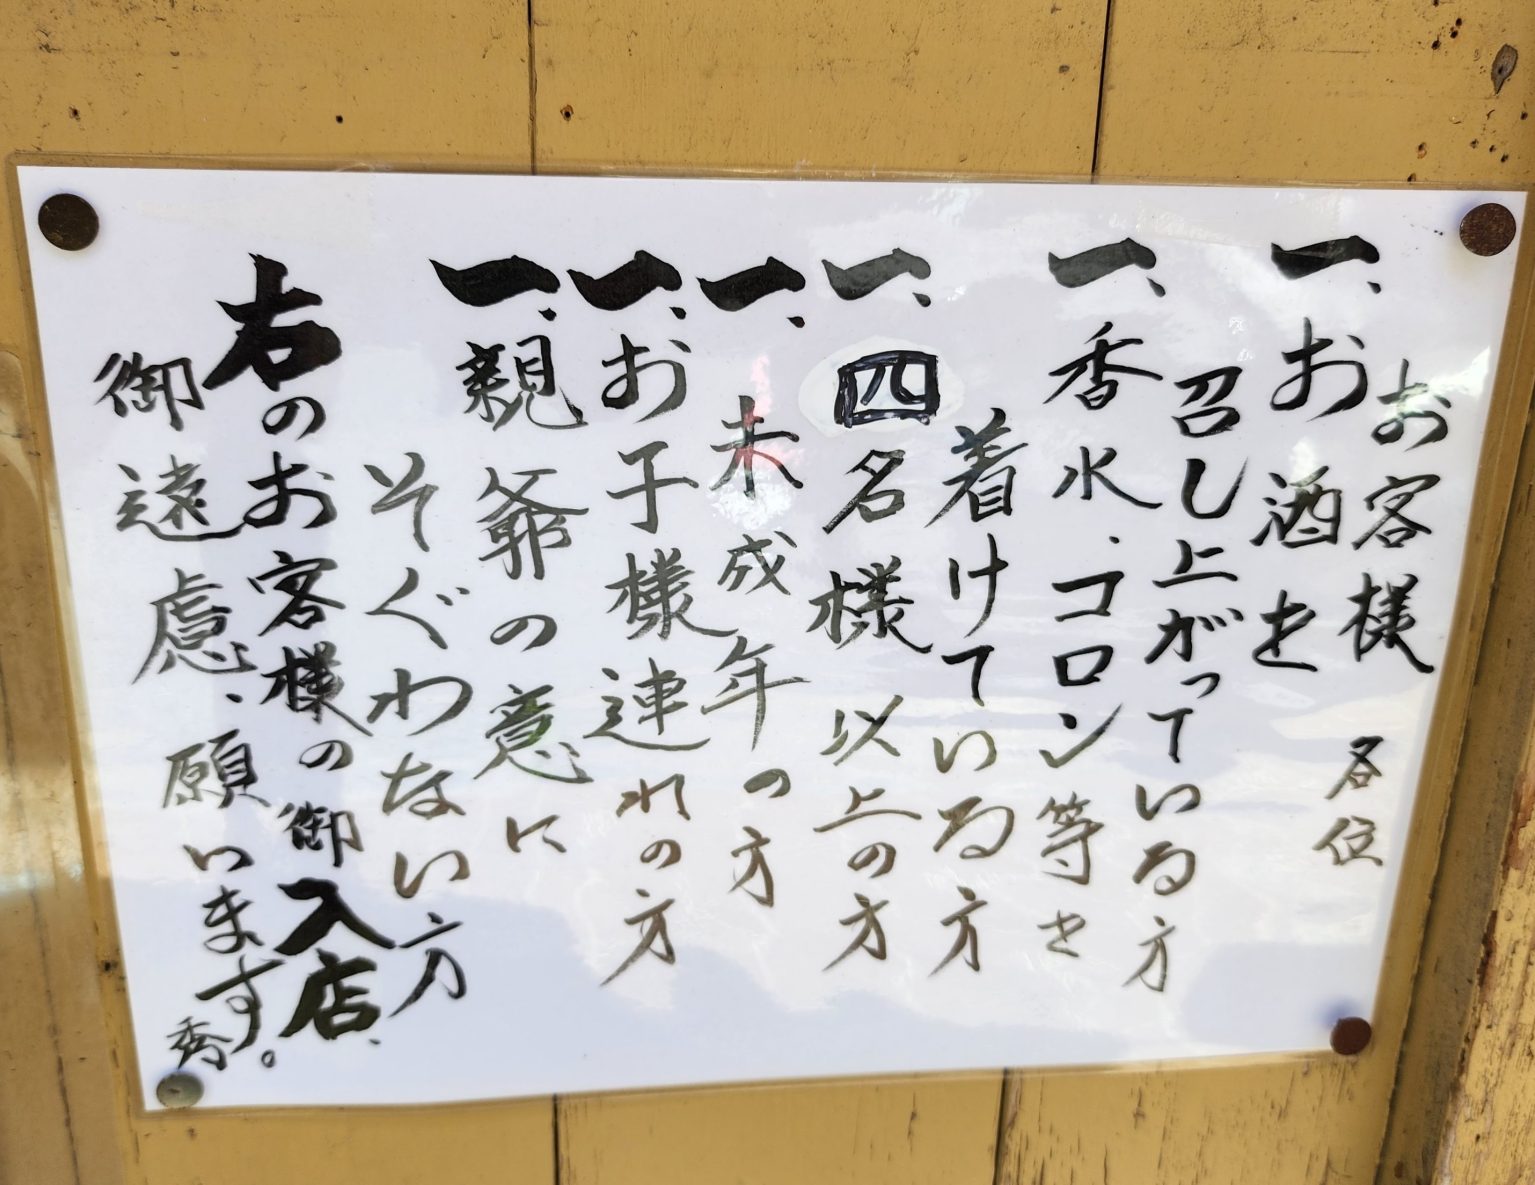 お客様 各位
一、お酒を
召し上がっている方
一、香水・コロン等を
着けている方
一、四名様以上の方
一、未成年の方
一、お子様連れの方
一、親爺の意に
そぐわない方
右のお客様の御入店、
御遠慮、願います。
秀